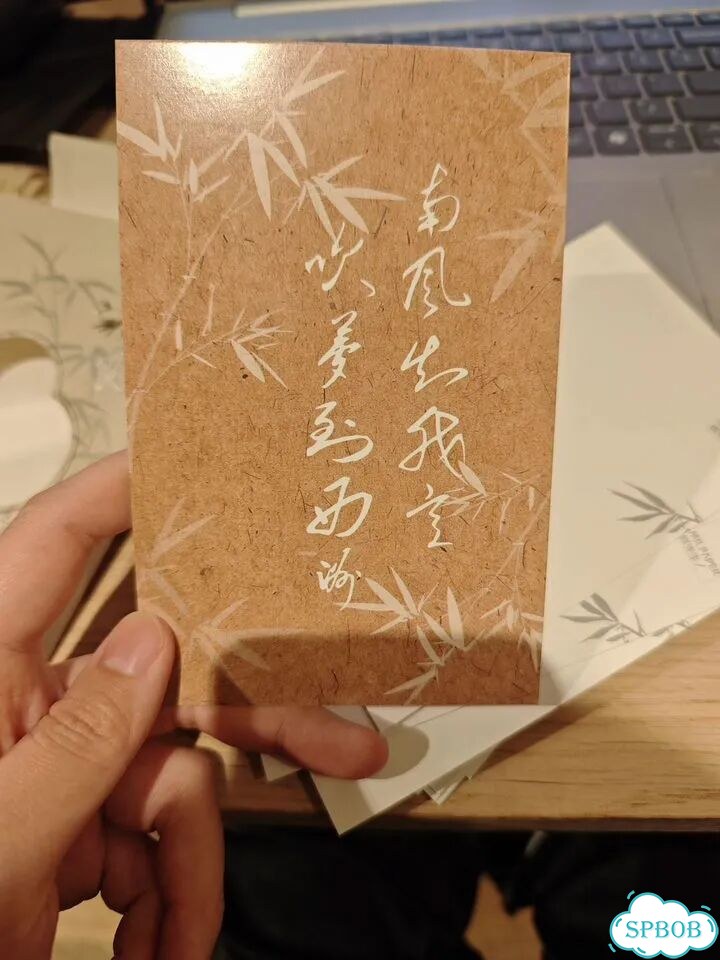 南风知我意
吹梦到西洲
SPBOB